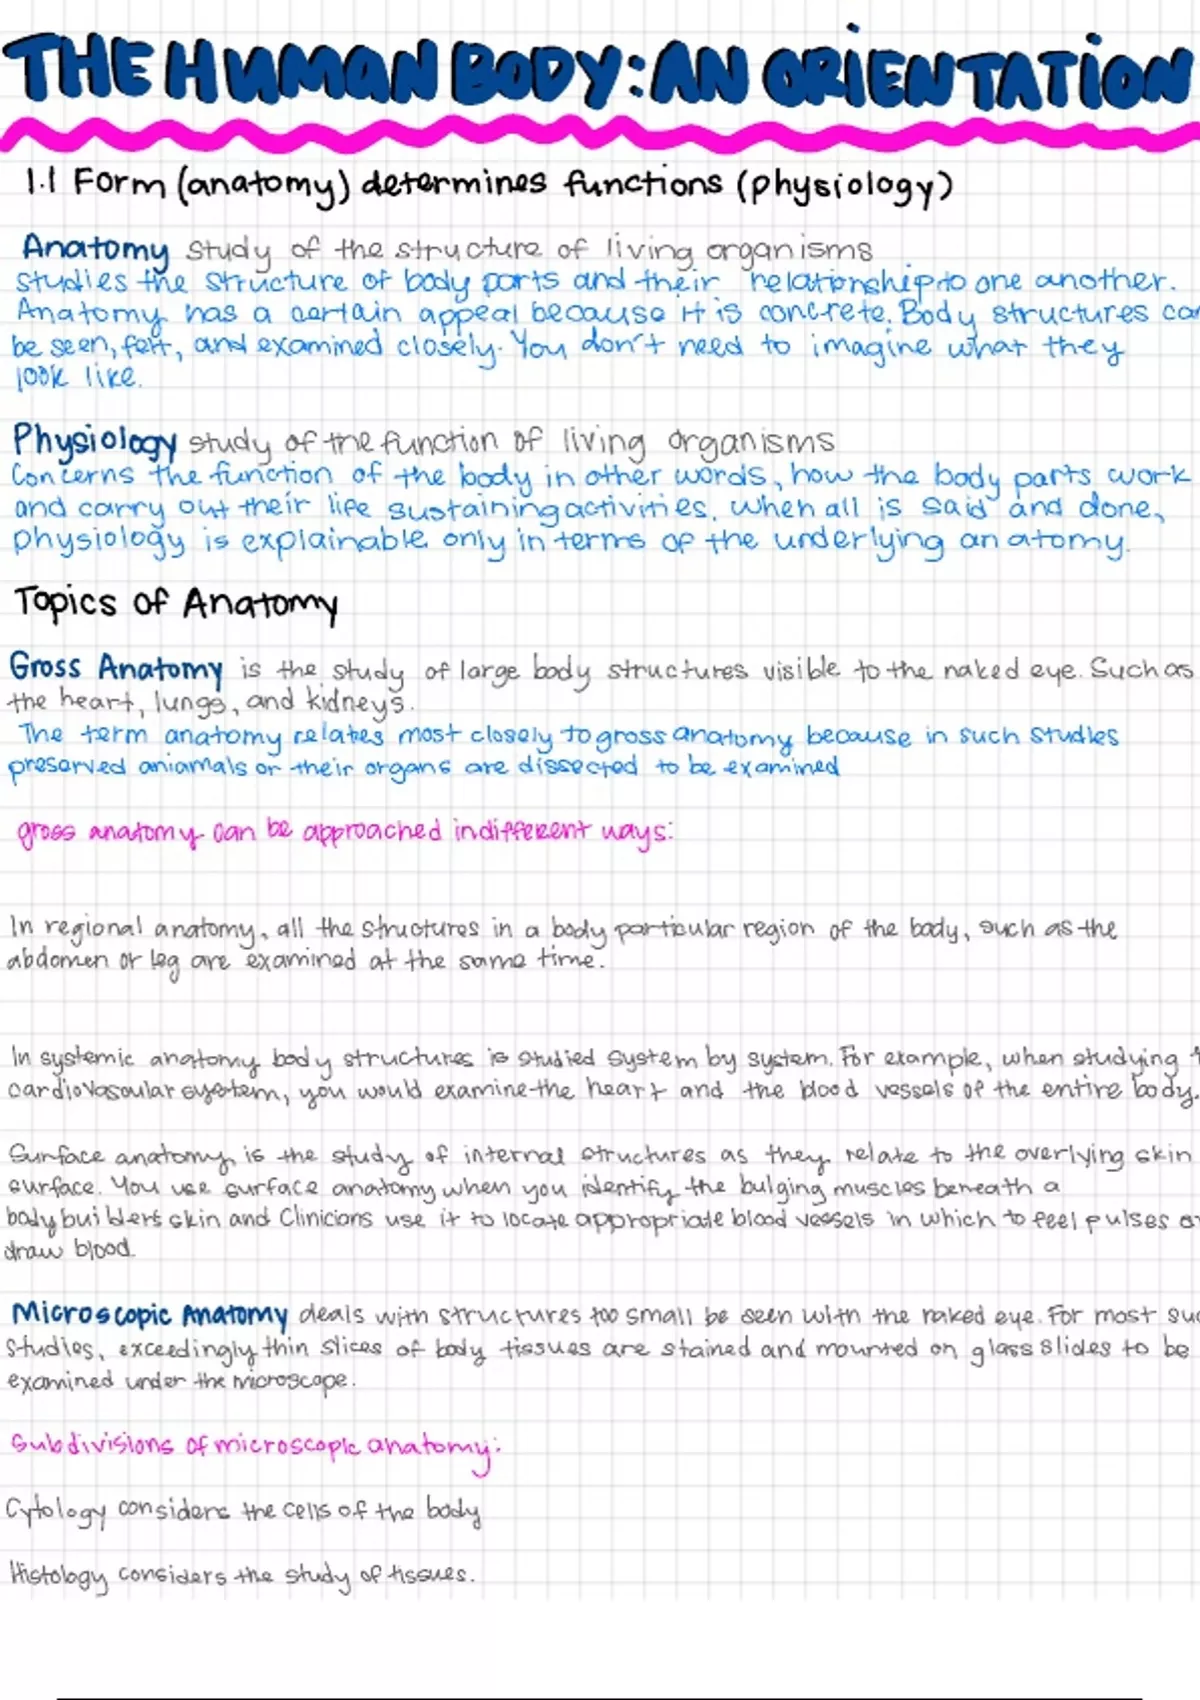 THE HUMAN BODY: AN ORIENTATION
1.1 Form (anatomy) determines functions (physiology)
Anatomy study of the structure of living organisms
studies the structure of body parts and their relationship to one another.
Anatomy has a certain appeal because it is concrete. Body structures can
be seen, felt, and examined closely. You don't need to imagine what they
look like.
Physiology study of the function of living organisms
Concerns the function of the body in other words, how the body parts work
and carry out their life sustaining activities. When all is said and done,
physiology is explainable only in terms of the underlying anatomy.
Topics of Anatomy
Gross Anatomy is the study of large body structures visible to the naked eye. Such as
the heart, lungs, and kidneys.
The term anatomy relates most closely to gross anatomy because in such studies
preserved aniamals or their organs are dissected to be examined
gross anatomy can be approached in different ways:
In regional anatomy, all the structures in a body particular region of the body, such as the
abdomen or leg are examined at the same time.
In systemic anatomy body structures is studied system by system. For example, when studying
cardiovascular system, you would examine the heart and the blood vessels of the entire body.
Surface anatomy is the study of internal structures as they relate to the overlying skin
surface. You use surface anatomy when you identify the bulging muscles beneath a
bodybuilders skin and Clinicians use it to locate appropriate blood vessels in which to feel pulses or
draw blood.
Microscopic Anatomy deals with structures too small be seen with the naked eye. For most suc
studies, exceedingly thin slices of body tissues are stained and mounted on glass slides to be
examined under the microscope.
Subdivisions of microscopic anatomy:
Cytology considers the cells of the body
Histology considers the study of tissues.